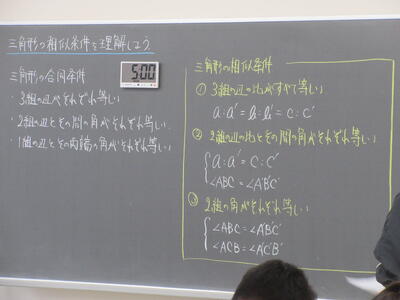 三角形の相似条件を理解しよう
三角形の合同条件
・3組の辺がそれぞれ等しい
・2組の辺とその間の角がそれぞれ等しい
・1組の辺とその両端の角がそれぞれ等しい
5:00
三角形の相似条件
① 3組の辺の比がすべて等しい
a:a'=b:b'=c:c'
② 2組の辺の比とその間の角がそれぞれ等しい
a:a'=c:c'
∠ABC=∠A'B'C'
③ 2組の角がそれぞれ等しい
∠ABC=∠A'B'C'
∠ACB=∠A'C'B'